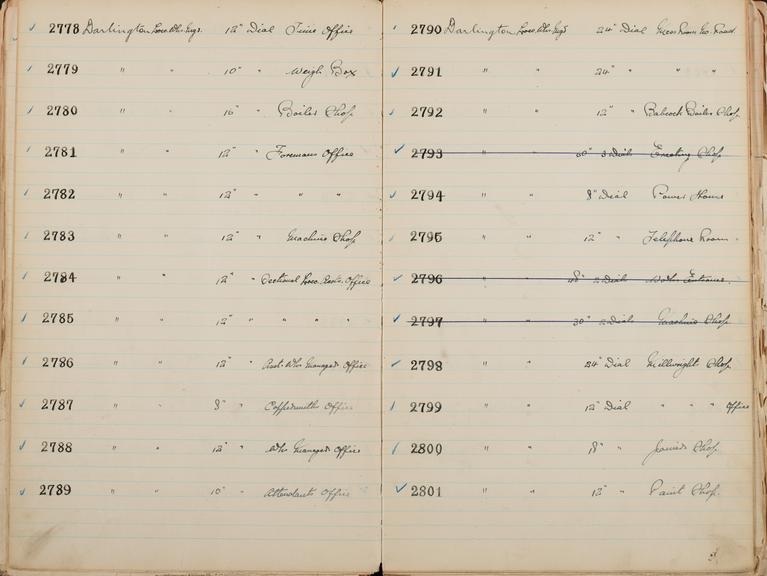 2778 Darlington Loco. Wks. Engs. 12" Dial Time Office
2779 " " 10" " Weigh Box
2780 " " 16" " Boiler Shop
2781 " " 12" " Foremans Office
2782 " " 12" " " "
2783 " " 12" " Machine Shop
2784 " " 12" " Sectional Loco. Office
2785 " " 12" " " " "
2786 " " 12" " Asst. Wks Managers Office
2787 " " 8" " Coppersmiths Office
2788 " " 12" " Wks Managers Office
2789 " " 10" " Attendants Office
2790 Darlington Loco. Wks. Engs 24" Dial Mess Room No. Road
2791 " " 24" " " "
2792 " " 12" " Babcock Boiler Shop
2793 " " 60" 3 Dials Erecting Shop
2794 " " 8" Dial Power House
2795 " " 12" " Telephone Room
2796 " " 48" 2 Dials Works Entrance
2797 " " 30" 2 Dials Machine Shop
2798 " " 24" Dial Millwright Shop
2799 " " 12" Dial " " " Office
2800 " " 18" " Joiners Shop
2801 " " 12" " Paint Shop.